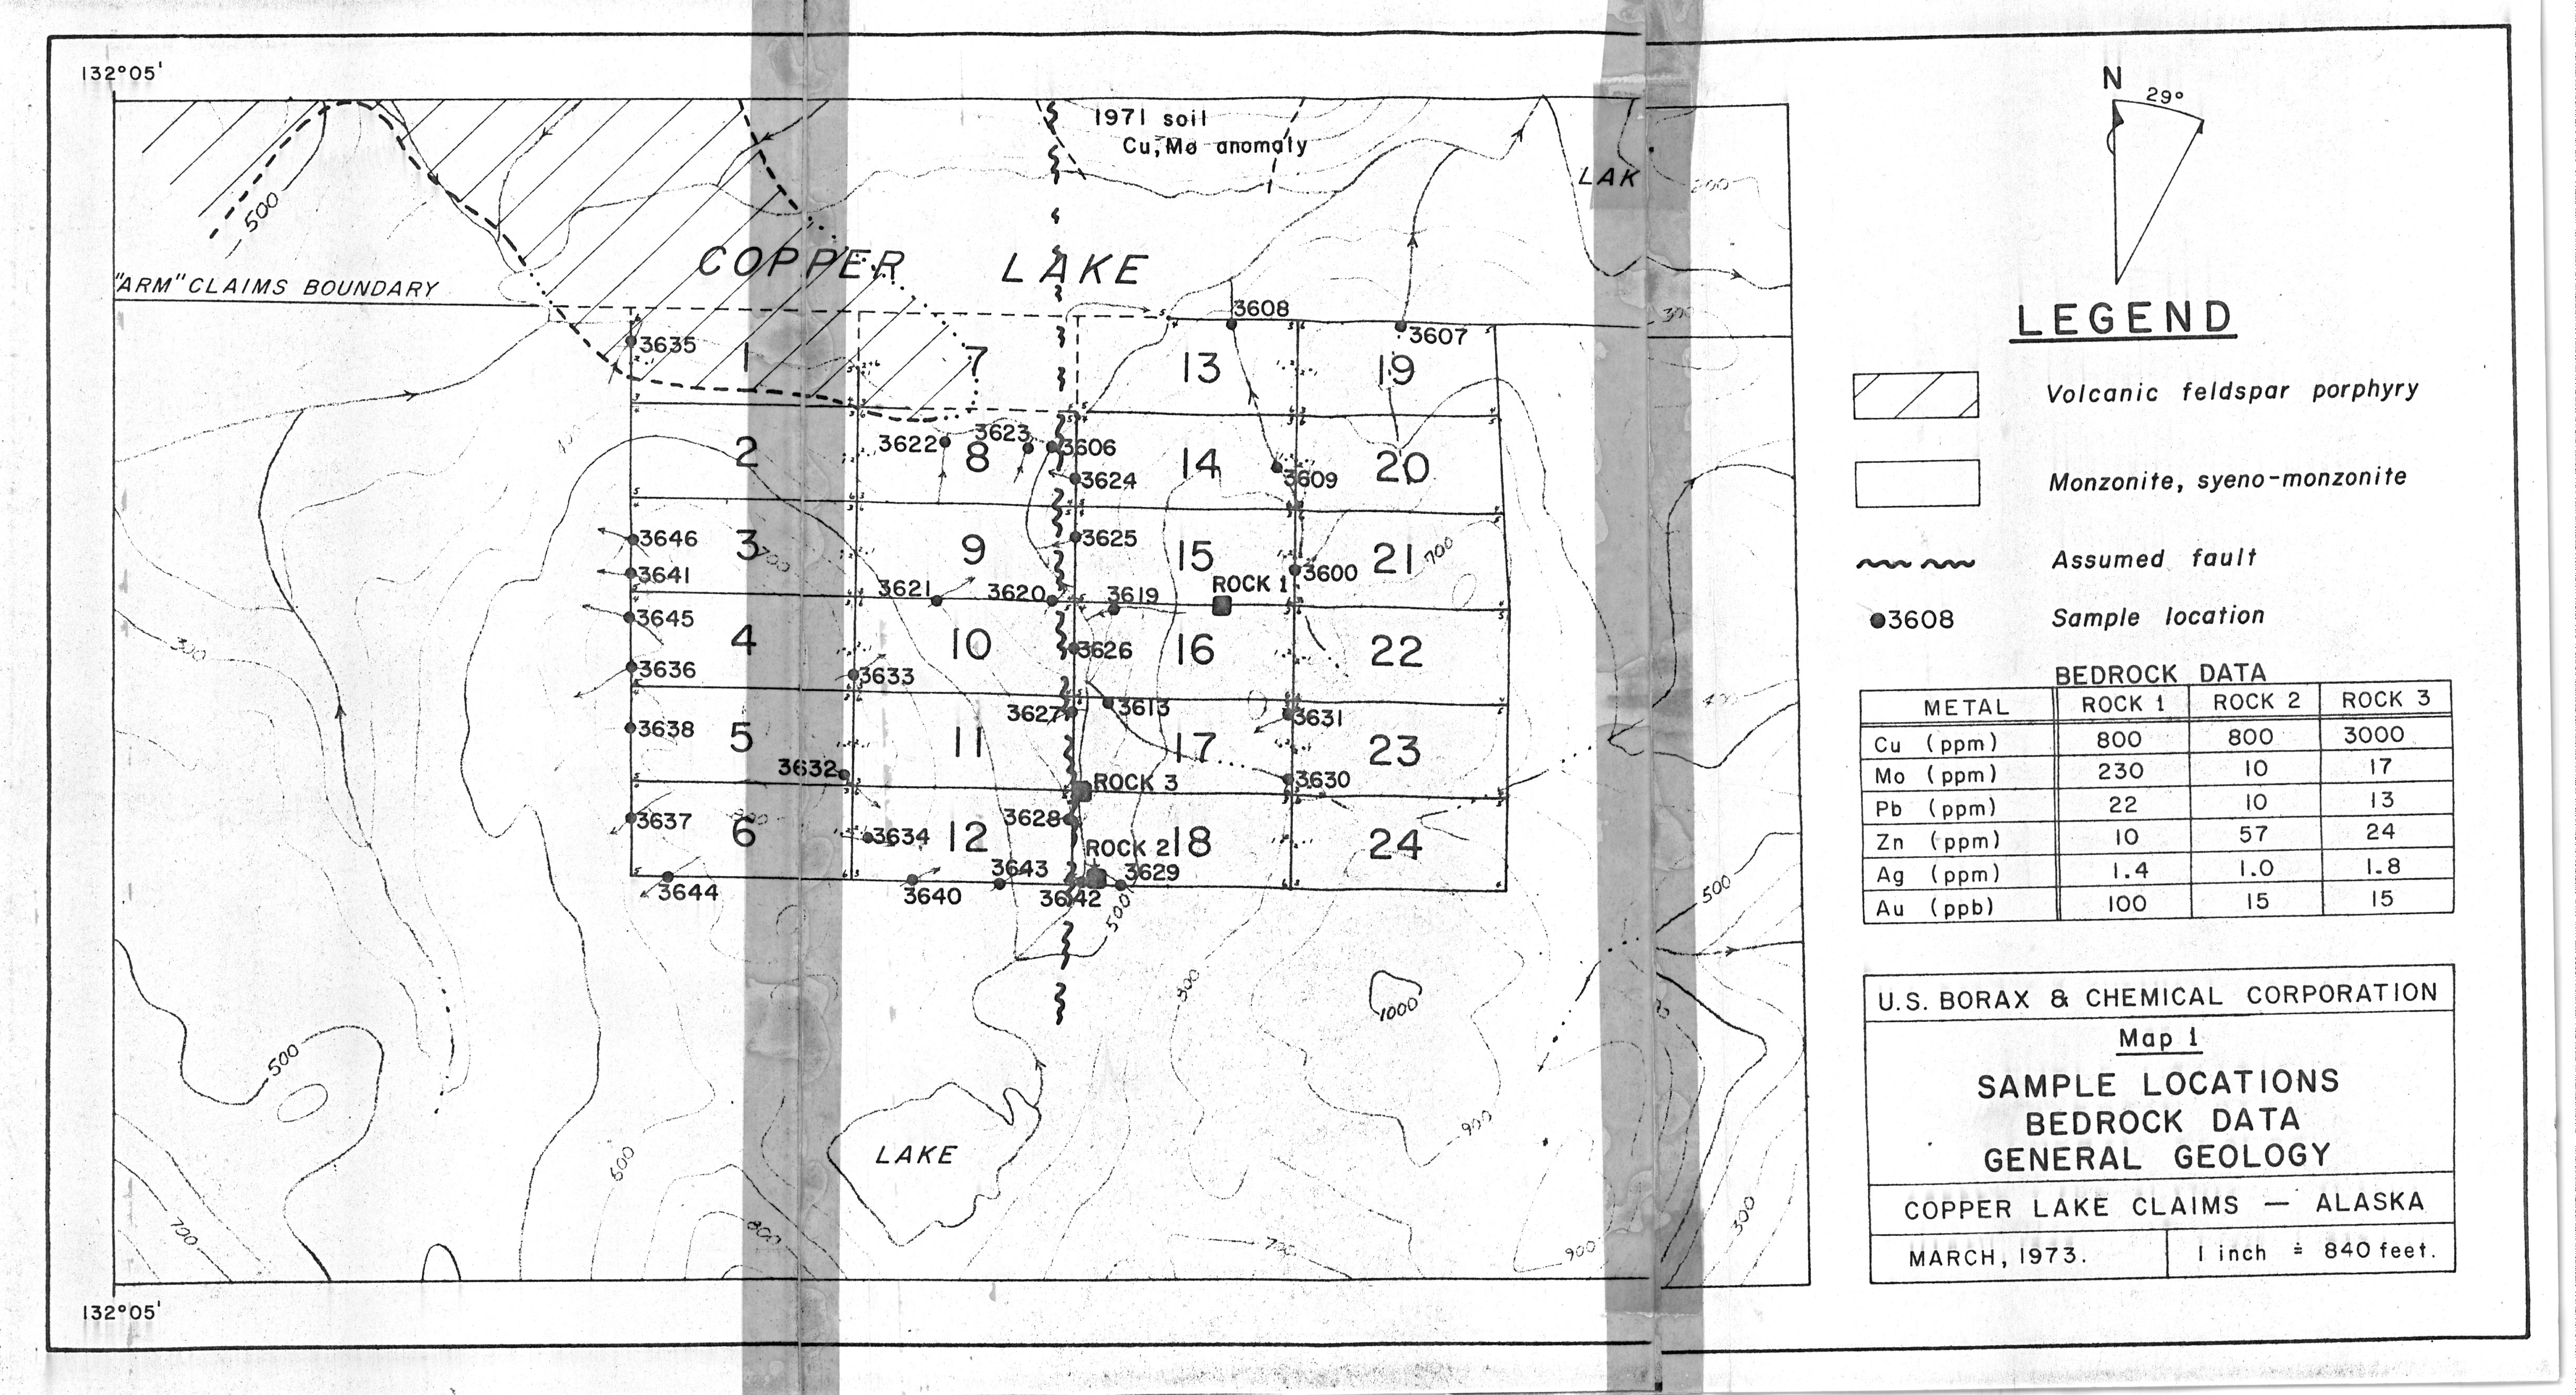 132°05'
1971 soil
Cu, Mo anomaly
LAK
200
500
COPPER LAKE
"ARM" CLAIMS BOUNDARY
300
3608
3607
3635
1
7
13
19
2
3622
3623
8
3606
14
20
3624
3609
3646
3
700
9
3625
15
21
700
3641
3600
ROCK 1
3621
3620
3619
3645
4
10
3626
16
22
300
3636
3633
3627
3613
3631
3638
5
11
17
23
3632
ROCK 3
3630
3637
6
3634
12
3628
18
24
ROCK 2
3643
3629
3644
3640
3642
500
500
800
1000
500
900
LAKE
600
700
800
700
900
300
132°05'
N
29°
LEGEND
Volcanic feldspar porphyry
Monzonite, syeno-monzonite
Assumed fault
3608 Sample location
BEDROCK DATA
METAL ROCK 1 ROCK 2 ROCK 3
Cu (ppm) 800 800 3000
Mo (ppm) 230 10 17
Pb (ppm) 22 10 13
Zn (ppm) 10 57 24
Ag (ppm) 1.4 1.0 1.8
Au (ppb) 100 15 15
U.S. BORAX & CHEMICAL CORPORATION
Map 1
SAMPLE LOCATIONS
BEDROCK DATA
GENERAL GEOLOGY
COPPER LAKE CLAIMS — ALASKA
MARCH, 1973.
1 inch ≐ 840 feet.